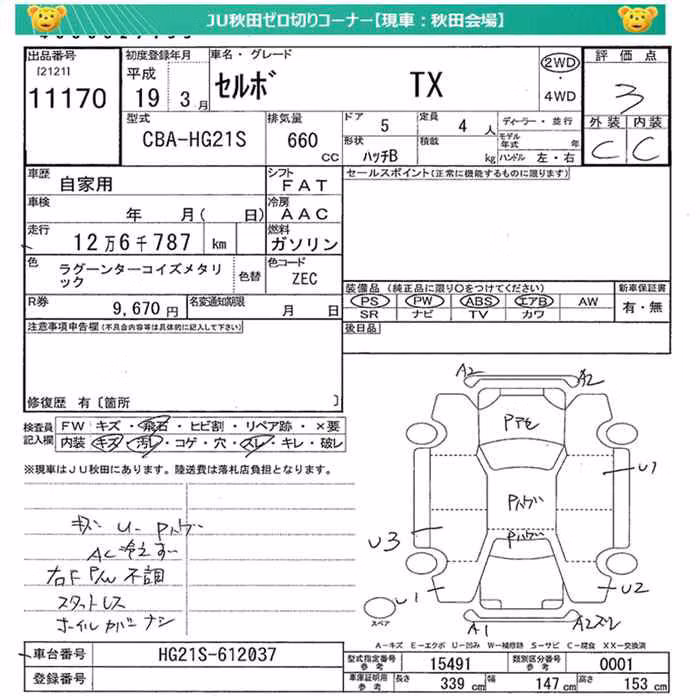 JU秋田ゼロ切りコーナー【現車：秋田会場】
出品番号
[2121]
11170
初度登録年月
平成
19 3 月
車名・グレード
セルボ TX
2WD
・
4WD
評価点
3
外装 内装
C C
型式
CBA-HG21S
排気量
660
CC
ドア 5
定員 4 人
ディーラー・並行
形状 ハッチB
積載 kg
モデル年式 年
ハンドル 左・右
車歴
自家用
シフト
FAT
セールスポイント(正常に機能するものに限ります)
車検
年 月( 日)
冷房
AAC
走行
12万6千787 km
燃料
ガソリン
色
ラグーンターコイズメタリ
ック
色替
色コード
ZEC
装備品 (純正品に限り○をつけてください)
新車保証書
PS PW ABS エアB AW
SR ナビ TV カワ
有・無
R券
9,670 円
名変通知期限
月 日
後日品
注意事項申告欄(不具合内容等は具体的に記入して下さい)
修復歴 有〔箇所 〕
検査員
記入欄
FW キズ・飛石・ヒビ割・リペア跡・×要
内装 キズ・汚レ・コゲ・穴・スレ・キレ・破レ
※現車はJU秋田にあります。陸送費は落札店負担となります。
キズ U- Pハゲ
AC冷えず
右F P/W 不調
スタットレス
ホイルカバーナシ
A2 A2
Pアセ
U1
Pハゲ
U3
Pハゲ
U1 U2
スペア
A1 A2ズレ
A－キズ E－エクボ U－凹み W－補修跡 S－サビ C－腐食 XX－交換済
車台番号
HG21S-612037
登録番号
型式指定番号
参考
15491
類別区分番号
参考
0001
車庫証明用
参考
長さ 339 cm
幅 147 cm
高さ 153 cm